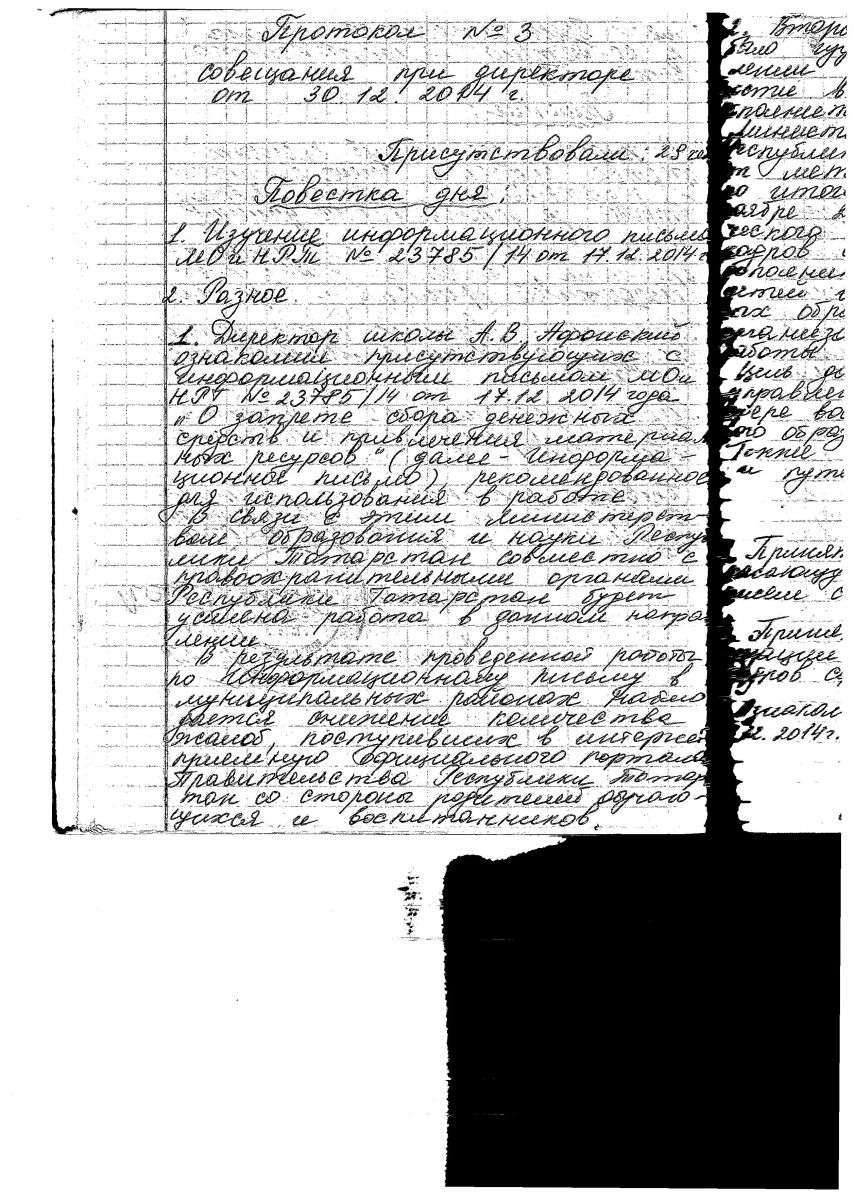 Протокол № 3
совещания при директоре
от 30. 12. 2014 г.
Присутствовали: 29 че
Повестка дня:
1. Изучение информационного письма
МО и НРТ № 23785/14 от 17.12.2014 г
2. Разное.
1. Директор школы А.В.
ознакомил присутствующих с
информационным письмом МО и
НРТ № 23785/14 от 17.12 2014 года
„О запрете сбора денежных
средств и привлечения материал
ных ресурсов" (далее - информа-
ционное письмо), рекомендованное
для использования в работе.
В связи с этим министерст
вом образования и науки Респуб
лики Татарстан совместно с
правоохранительными органами
Республики Татарстан будет
усилена работа в данном направ
лении.
В результате проведенной работы
по информационному письму в
муниципальных районах наблю
дается снижение количества
жалоб, поступивших в интернет
приемную Официального портала
Правительства Республики Татар
тан со стороны родителей обучаю-
щихся и воспитанников.
2. Второ
лении
стие в
полнение
Минист
еспубли
т мет
о итог
аябре 2
ческого
адров
ополни
етей
ых обра
аботы
Цель
управлен
ого образ
Также
и путе
Принят
Ознаком
12. 2014г.